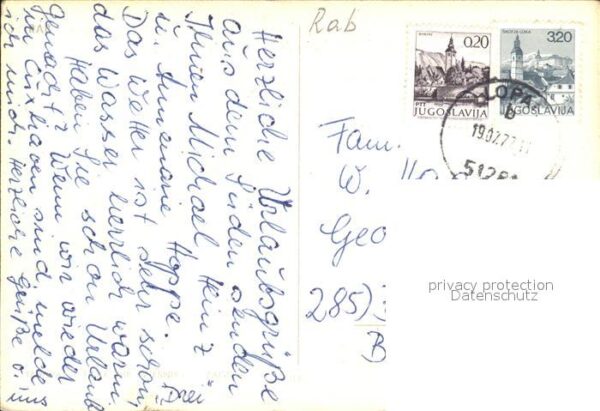 Rab
Herzliche Urlaubsgrüße
aus dem Süden senden
Ihnen Michael, Heinz
u. Annemarie Hoppe.
Das Wetter ist sehr schön,
das Wasser herrlich warm.
Haben Sie schon Urlaub
gemacht? Wenn wir wieder
in Cuxhaven sind melde
ich mich. Herzliche Grüße v. uns
"Drei"
0,20
PTT
JUGOSLAVIJA
ŠKOFJA LOKA
3,20
JUGOSLAVIJA
LOPAR
19.02.77
Fam.
W.
Geo
285
B
privacy protection
Datenschutz